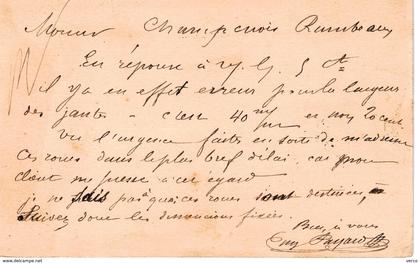 Monsieur Champenois Rambeaux
En réponse à v/ 5 Ct
il y a en effet erreur pour la largeur
des jantes - c'est 40 m/m et non 20 cent
Vu l'urgence faites en sorte de m'adresser
ces roues dans le plus bref délai, car mon
client me presse à cet égard
je ne sais pas à quoi ces roues sont destinées,
Suivez donc les dimensions fixées.
Bien à vous